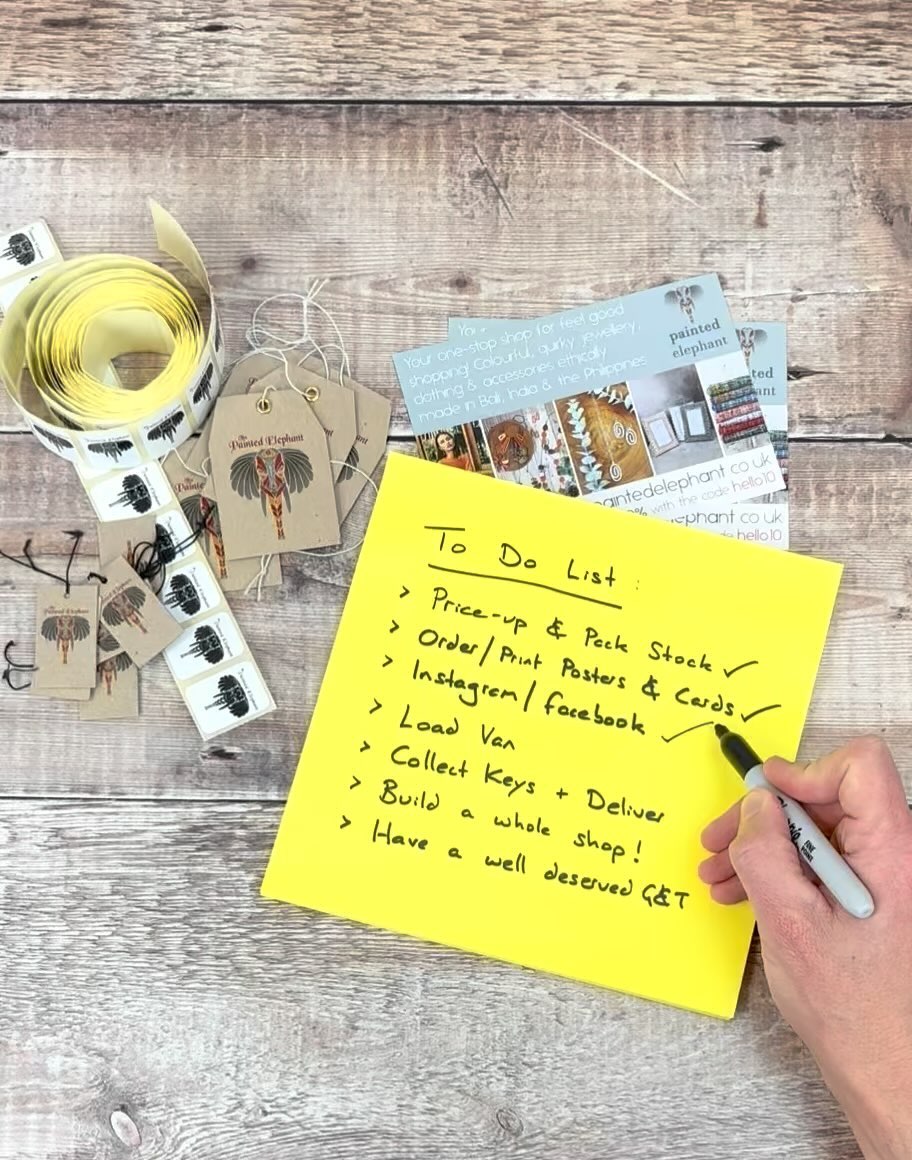 Your one-stop shop for feel good
shopping! Colourful, quirky jewellery,
clothing & accessories ethically
made in Bali, India & the Philippines
painted
elephant
paintedelephant co uk
with the code hello10
ephant co uk
hello10
The
Painted Elephant
To Do List :
> Price-up & Pack Stock ✓
> Order/Print Posters & Cards ✓
> Instagram/facebook ✓
> Load Van
> Collect Keys + Deliver
> Build a whole shop!
> Have a well deserved G&T
FINE
POINT